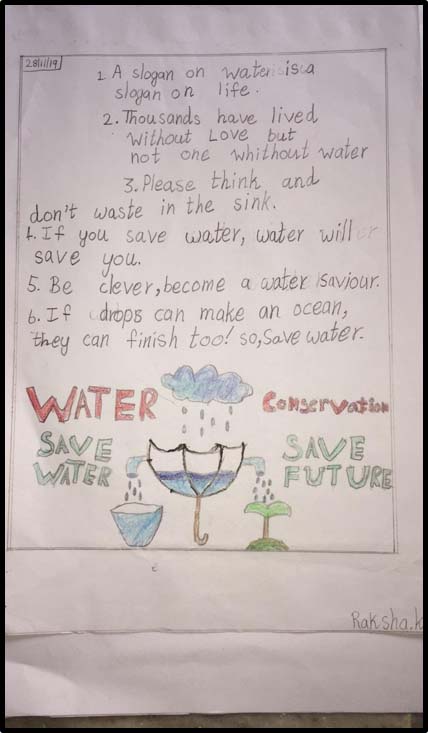 28/11/19
1. A slogan on water is a
slogan on life.
2. Thousands have lived
without Love but
not one whithout water
3. Please think and
don't waste in the sink.
4. If you save water, water will
save you.
5. Be clever, become a water saviour.
6. If drops can make an ocean,
they can finish too! so, Save water.
WATER Conservation
SAVE WATER
SAVE FUTURE
Raksha.k